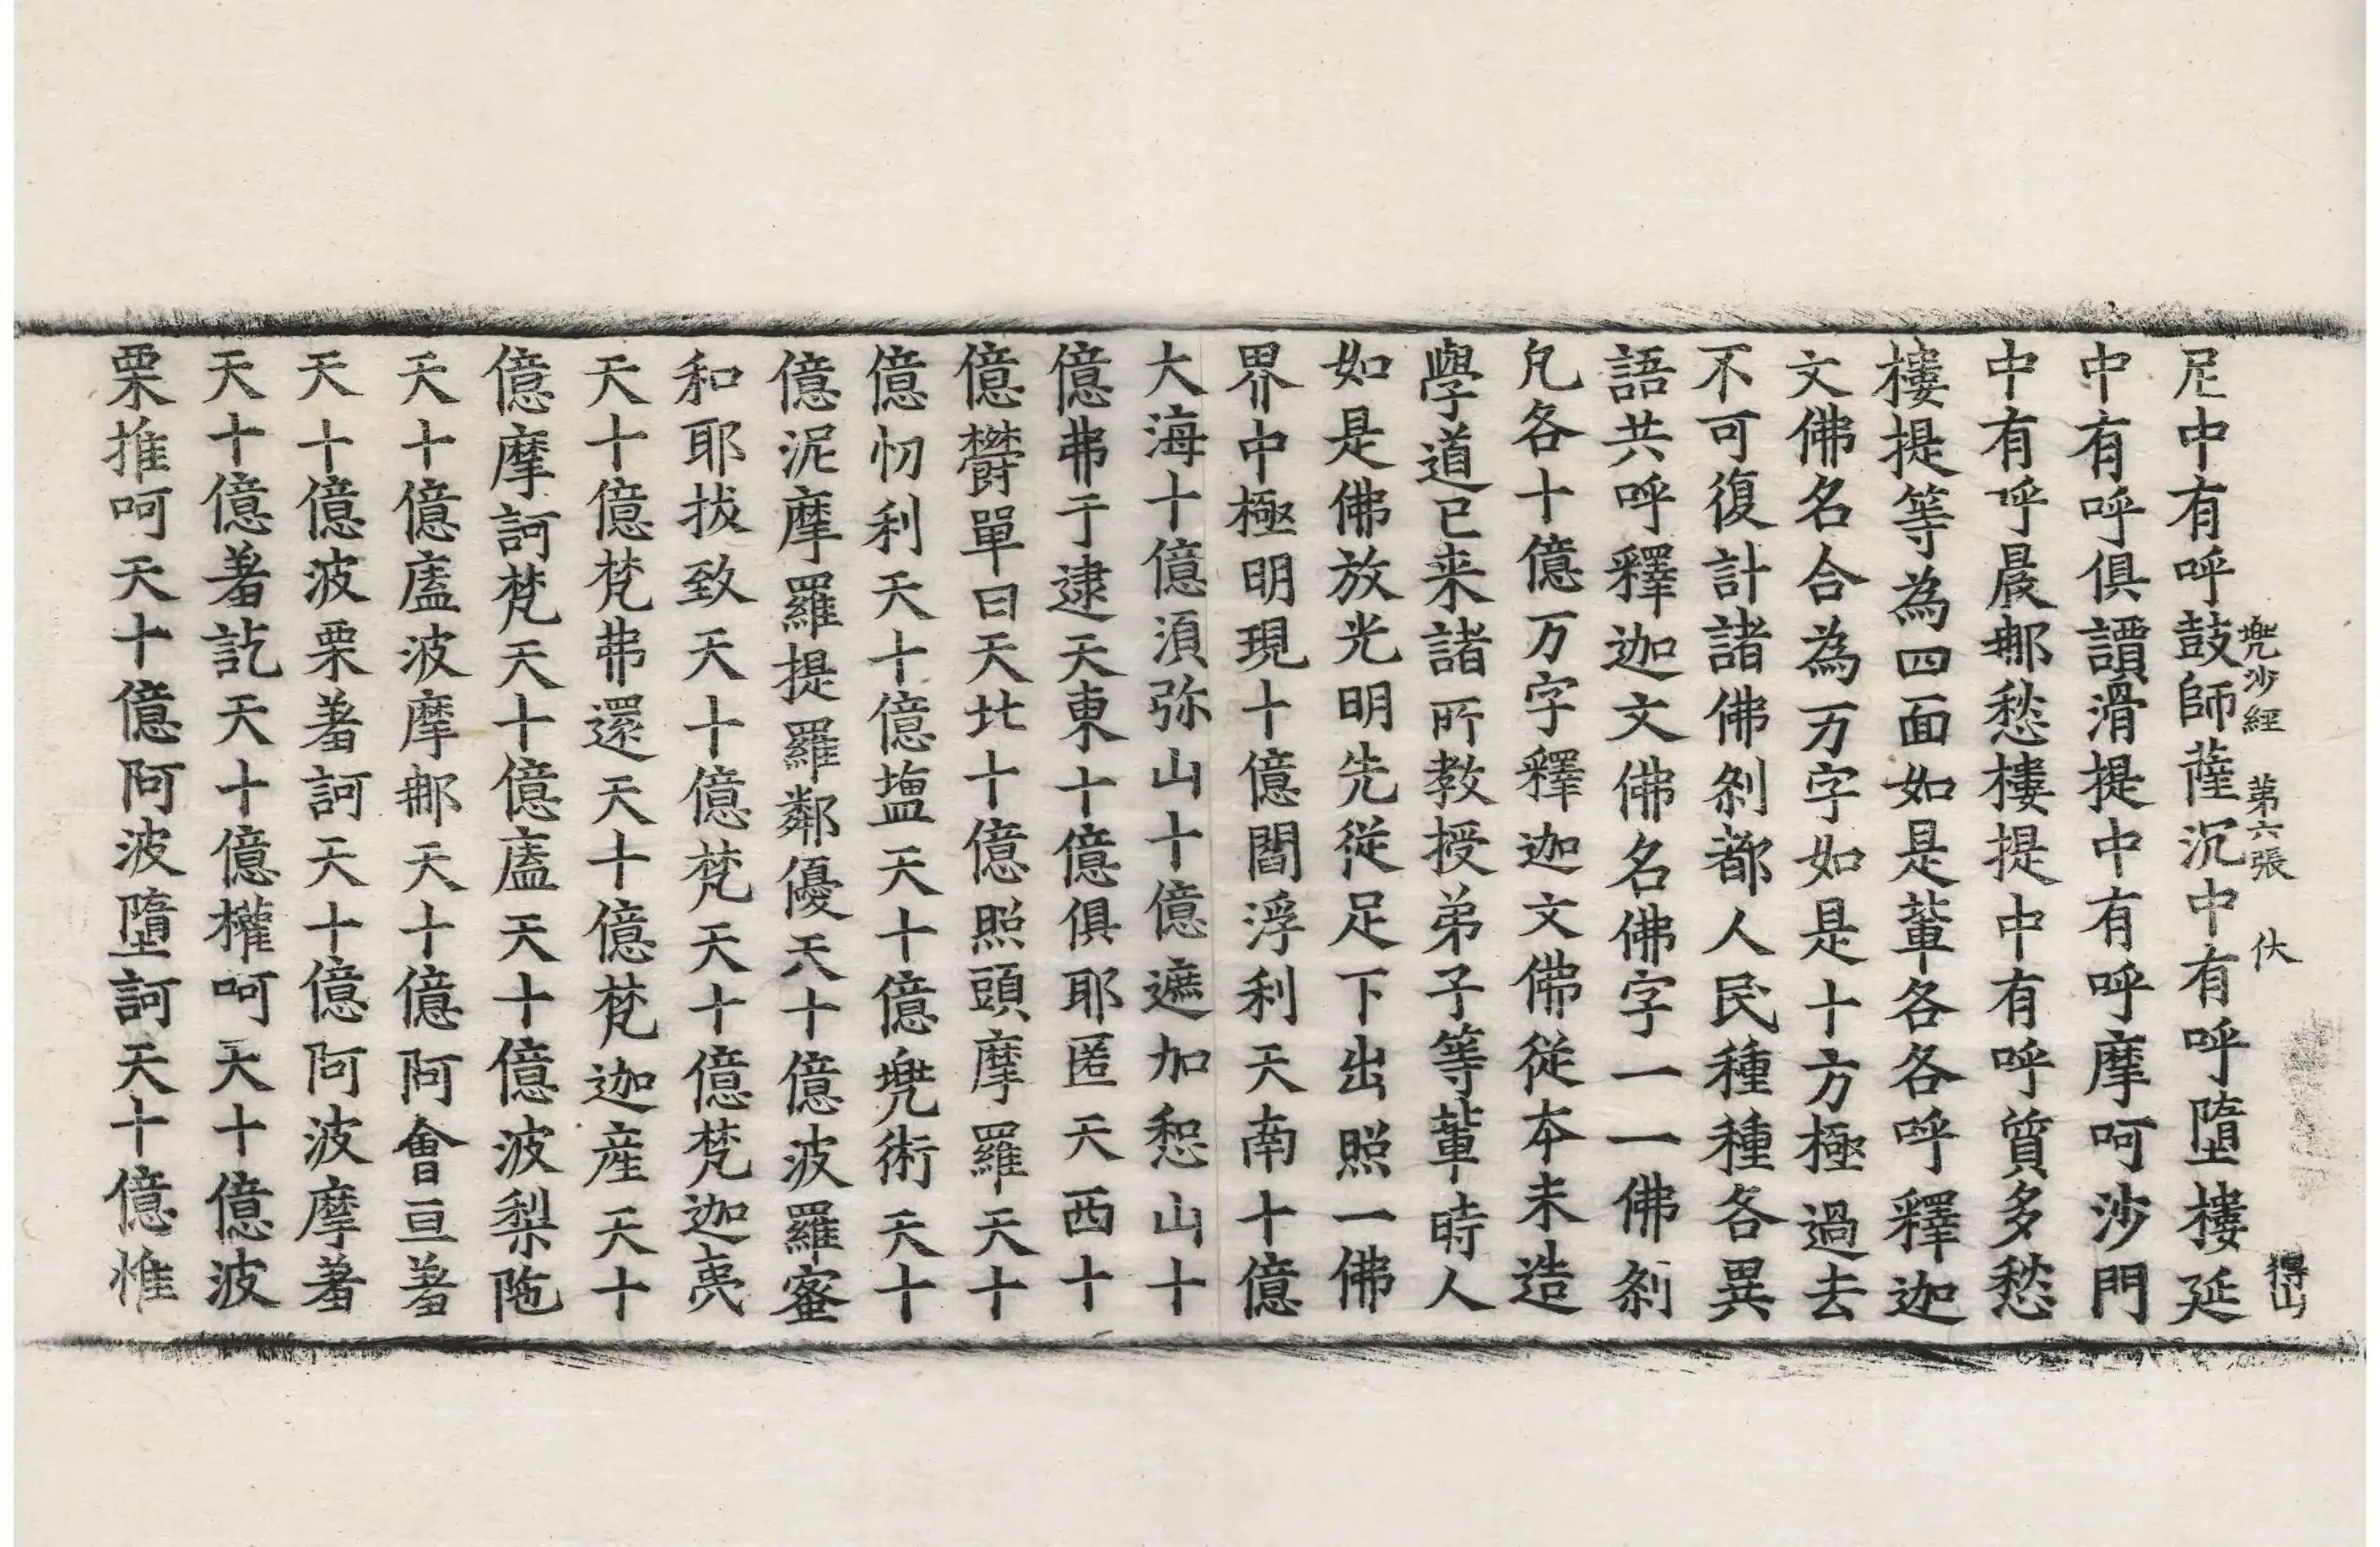 兜沙經 第六張 伏
得山
尼中有呼鼓師薩沉中有呼墮樓延
中有呼俱譚滑提中有呼摩呵沙門
中有呼晨𨚗愁樓提中有呼質多愁
樓提等為四面如是軰各各呼釋迦
文佛名合為万字如是十方極過去
不可復計諸佛刹都人民種種各異
語共呼釋迦文佛名佛字一一佛刹
凢各十億万字釋迦文佛從本未造
學道已来諸所教授弟子等軰時人
如是佛放光明先從足下出照一佛
界中極明現十億閻浮利天南十億
大海十億湏弥山十億遮加惒山十
億弗于逮天東十億俱耶匿天西十
億欝單曰天北十億照頭摩羅天十
億忉利天十億塩天十億兜術天十
億泥摩羅提羅鄰優天十億波羅蜜
和耶拔致天十億梵天十億梵迦夷
天十億梵弗還天十億梵迦産天十
億摩訶梵天十億廅天十億波梨陁
天十億廅波摩𨚗天十億阿會亘羞
天十億波栗羞訶天十億阿波摩羞
天十億羞訖天十億權呵天十億波
栗推呵天十億阿波墮訶天十億惟